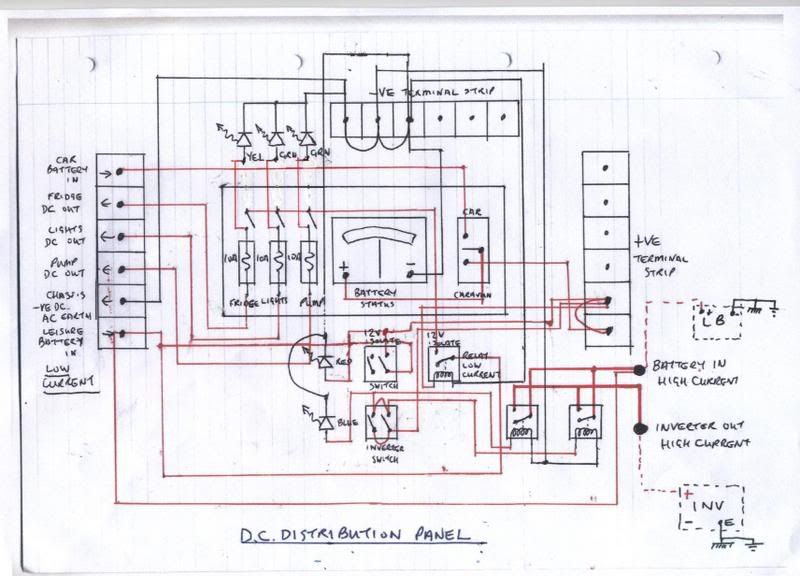 -VE TERMINAL STRIP
YEL
GRN
GRN
CAR
BATTERY
IN
FRIDGE
DC OUT
LIGHTS
DC OUT
PUMP
DC OUT
CHASSIS
-VE DC.
AC EARTH
LEISURE
BATTERY
IN
LOW
CURRENT
10A
10A
10A
FRIDGE
LIGHTS
PUMP
+
-
BATTERY
STATUS
CAR
CARAVAN
+VE
TERMINAL
STRIP
+
LB
12V
ISOLATE
SWITCH
12V
ISOLATE
RELAY
LOW
CURRENT
RED
BLUE
INVERTER
SWITCH
BATTERY IN
HIGH CURRENT
INVERTER OUT
HIGH CURRENT
+
INV
-
E
D.C. DISTRIBUTION PANEL